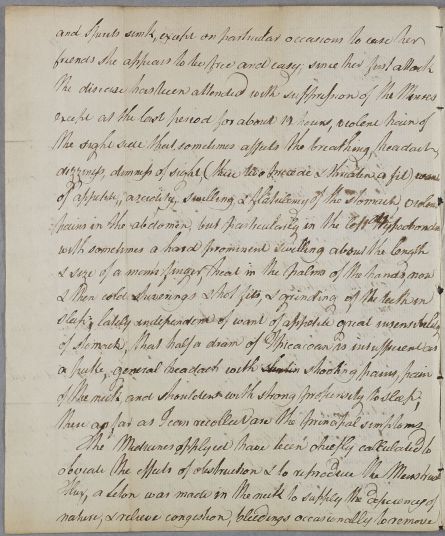 and Spirits sink, except on particular occasions to ease her
friends she appears to be free and easy; since her first attack
the disease has been attended with suppression of the Menses
except at the last period for about 12 hours, violent pain of
the right side that sometimes affects the breathing, headach,
dizziness, dimness of sight (these two precede & threaten a fit) want
of appetite, anxiety, swelling & flatulency of the stomach, violent
pains in the abdomen, but particularly in the left Hypochondria
with sometimes a hard prominent swelling about the length
& size of a mans finger, heat in the palms of the hands, now
& then cold shiverings & hot fits, & grinding of the teeth in
sleep, lately independent of want of appetite a great insensibility
of stomach, that half a dram of Ipicacoan is insufficient as
a puke, general headach with shooting pains, pain
of the neck and shoulders with strong propensity to sleep,
these as far as I can recollect are the principal simptoms
The Medicines applyed have been chiefly calculated to
obviate the effects of obstruction & to reproduce the Menstrual
flux, a seton was made in the neck to supply the deficiency of
nature, & relieve congestion, bleedings occasionally to remove